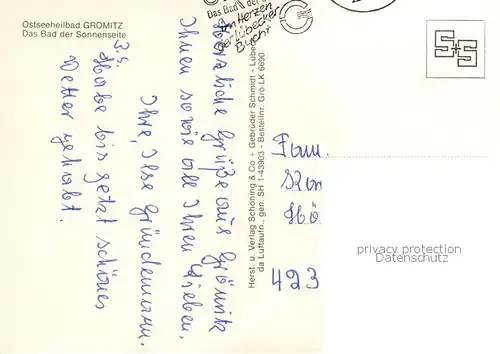 Ostseeheilbad GRÖMITZ
Das Bad der Sonnenseite
Das Bad der
Am Herzen
der Lübecker
Bucht
Herzliche Grüße aus Grömitz
Ihnen sowie all Ihren Lieben.
Ihre, Ilse Gründemann.
3.S.
Habe bis jetzt schönes
Wetter gehabt.
Herst. u. Verlag Schöning & Co + Gebrüder Schmidt - Lübe
da Luftaufn., gen. SH 1-43903 - Bestellnr. Grö LK 6690
S+S
Fam.
Kon
Hö
423
privacy protection
Datenschutz